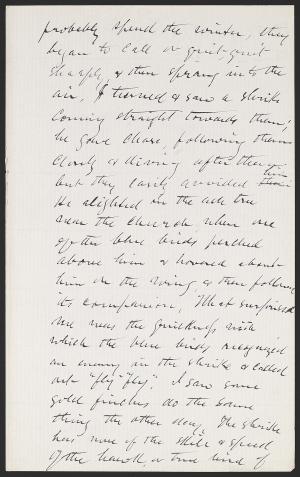 probably spend the winter, they
began to call or quit-quit
sharply, & then spring into the
air, I turned & saw a shrike
coming straight towards them;
he gave chase, following them
closely & diving after them
but they easily avoided him
He alighted in the ash tree
near the church, when one
of the blue birds perched
above him & hovered about
him on the wing, & then following
its companion, What surprised
me was the quickness with
which the blue birds recognized
an enemy in the shrike & called
out "fly" "fly". I saw some
gold finches do the same
thing the other day. The shrike
has none of the skill & speed
of the hawk, a true bird of